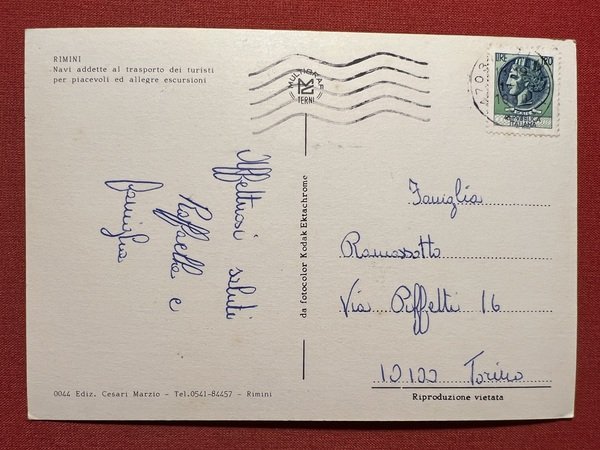 RIMINI
Navi addette al trasporto dei turisti
per piacevoli ed allegre escursioni
MULTIGRAF
TERNI
LIRE 120
REPUBBLICA
ITALIANA
Affettuosi saluti
Raffaella e
famiglia
da fotocolor Kodak Ektachrome
Famiglia
Ramassotto
Via Piffetti 16
10100 Torino
0044 Ediz. Cesari Marzio - Tel.0541-84457 - Rimini
Riproduzione vietata